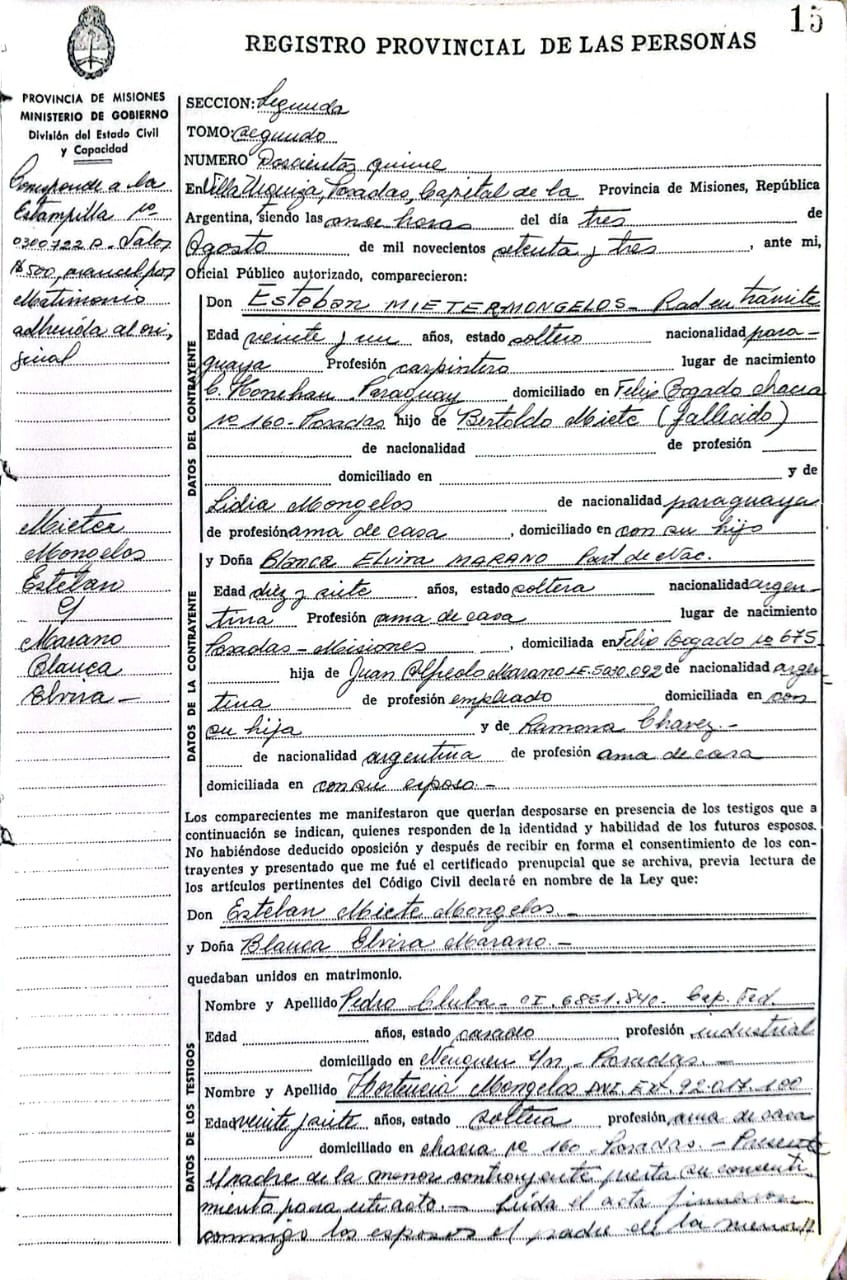 15
REGISTRO PROVINCIAL DE LAS PERSONAS
PROVINCIA DE MISIONES
MINISTERIO DE GOBIERNO
División del Estado Civil
y Capacidad
Corresponde a la
Estampilla Nº
0300722 A. Valor
$ 500,
Matrimonio
adherida al ori,
ginal
Mieter
Mongelos
Esteban
c/
Marano
Blanca
Elvira -
SECCION: Segunda
TOMO: segundo
NUMERO Doscientos quince
En Villa Urquiza, Posadas, Capital de la Provincia de Misiones, República
Argentina, siendo las once horas del día tres de
Agosto de mil novecientos setenta y tres, ante mi,
Oficial Público autorizado, comparecieron:
DATOS DEL CONTRAYENTE
Don Esteban MIETERMONGELOS - Rad en trámite
Edad veinte y un años, estado soltero nacionalidad para-
guaya Profesión carpintero lugar de nacimiento
C. Honehan - Paraguay domiciliado en Felix Bogado chacra
Nº 160 - Posadas hijo de Bertoldo Miete (fallecido)
de nacionalidad de profesión
domiciliado en y de
Lidia Mongelos de nacionalidad paraguaya
de profesión ama de casa, domiciliado en con su hijo
DATOS DE LA CONTRAYENTE
y Doña Blanca Elvira MARANO Part de Nac.
Edad diez y siete años, estado soltera nacionalidad argen-
tina Profesión ama de casa lugar de nacimiento
Posadas - Misiones, domiciliada en Felix Bogado Nº 675
hija de Juan Alfredo Marano LE. 5.030.092 de nacionalidad argen-
tina de profesión empleado domiciliada en con
su hija y de Ramona Chavez. -
de nacionalidad argentina de profesión ama de casa
domiciliada en con su esposo. -
Los comparecientes me manifestaron que querían desposarse en presencia de los testigos que a
continuación se indican, quienes responden de la identidad y habilidad de los futuros esposos.
No habiéndose deducido oposición y después de recibir en forma el consentimiento de los con-
trayentes y presentado que me fué el certificado prenupcial que se archiva, previa lectura de
los artículos pertinentes del Código Civil declaré en nombre de la Ley que:
Don Esteban Miete Mongelos. -
y Doña Blanca Elvira Marano. -
quedaban unidos en matrimonio.
DATOS DE LOS TESTIGOS
Nombre y Apellido Pedro Chuba - CI. 6861.840 - Cap. Fed.
Edad años, estado casado profesión industrial
domiciliado en Neuquen s/n - Posadas. -
Nombre y Apellido Hortencia Mongelos DNI. Ex. 92.017.100
Edad veinte y siete años, estado soltera profesión ama de casa
domiciliado en chacra Nº 160 - Posadas. - Presente
el padre de la menor contrayente presta su consenti
miento para este acto. - Leída el acta firmaron
conmigo los esposos el padre de la menor//